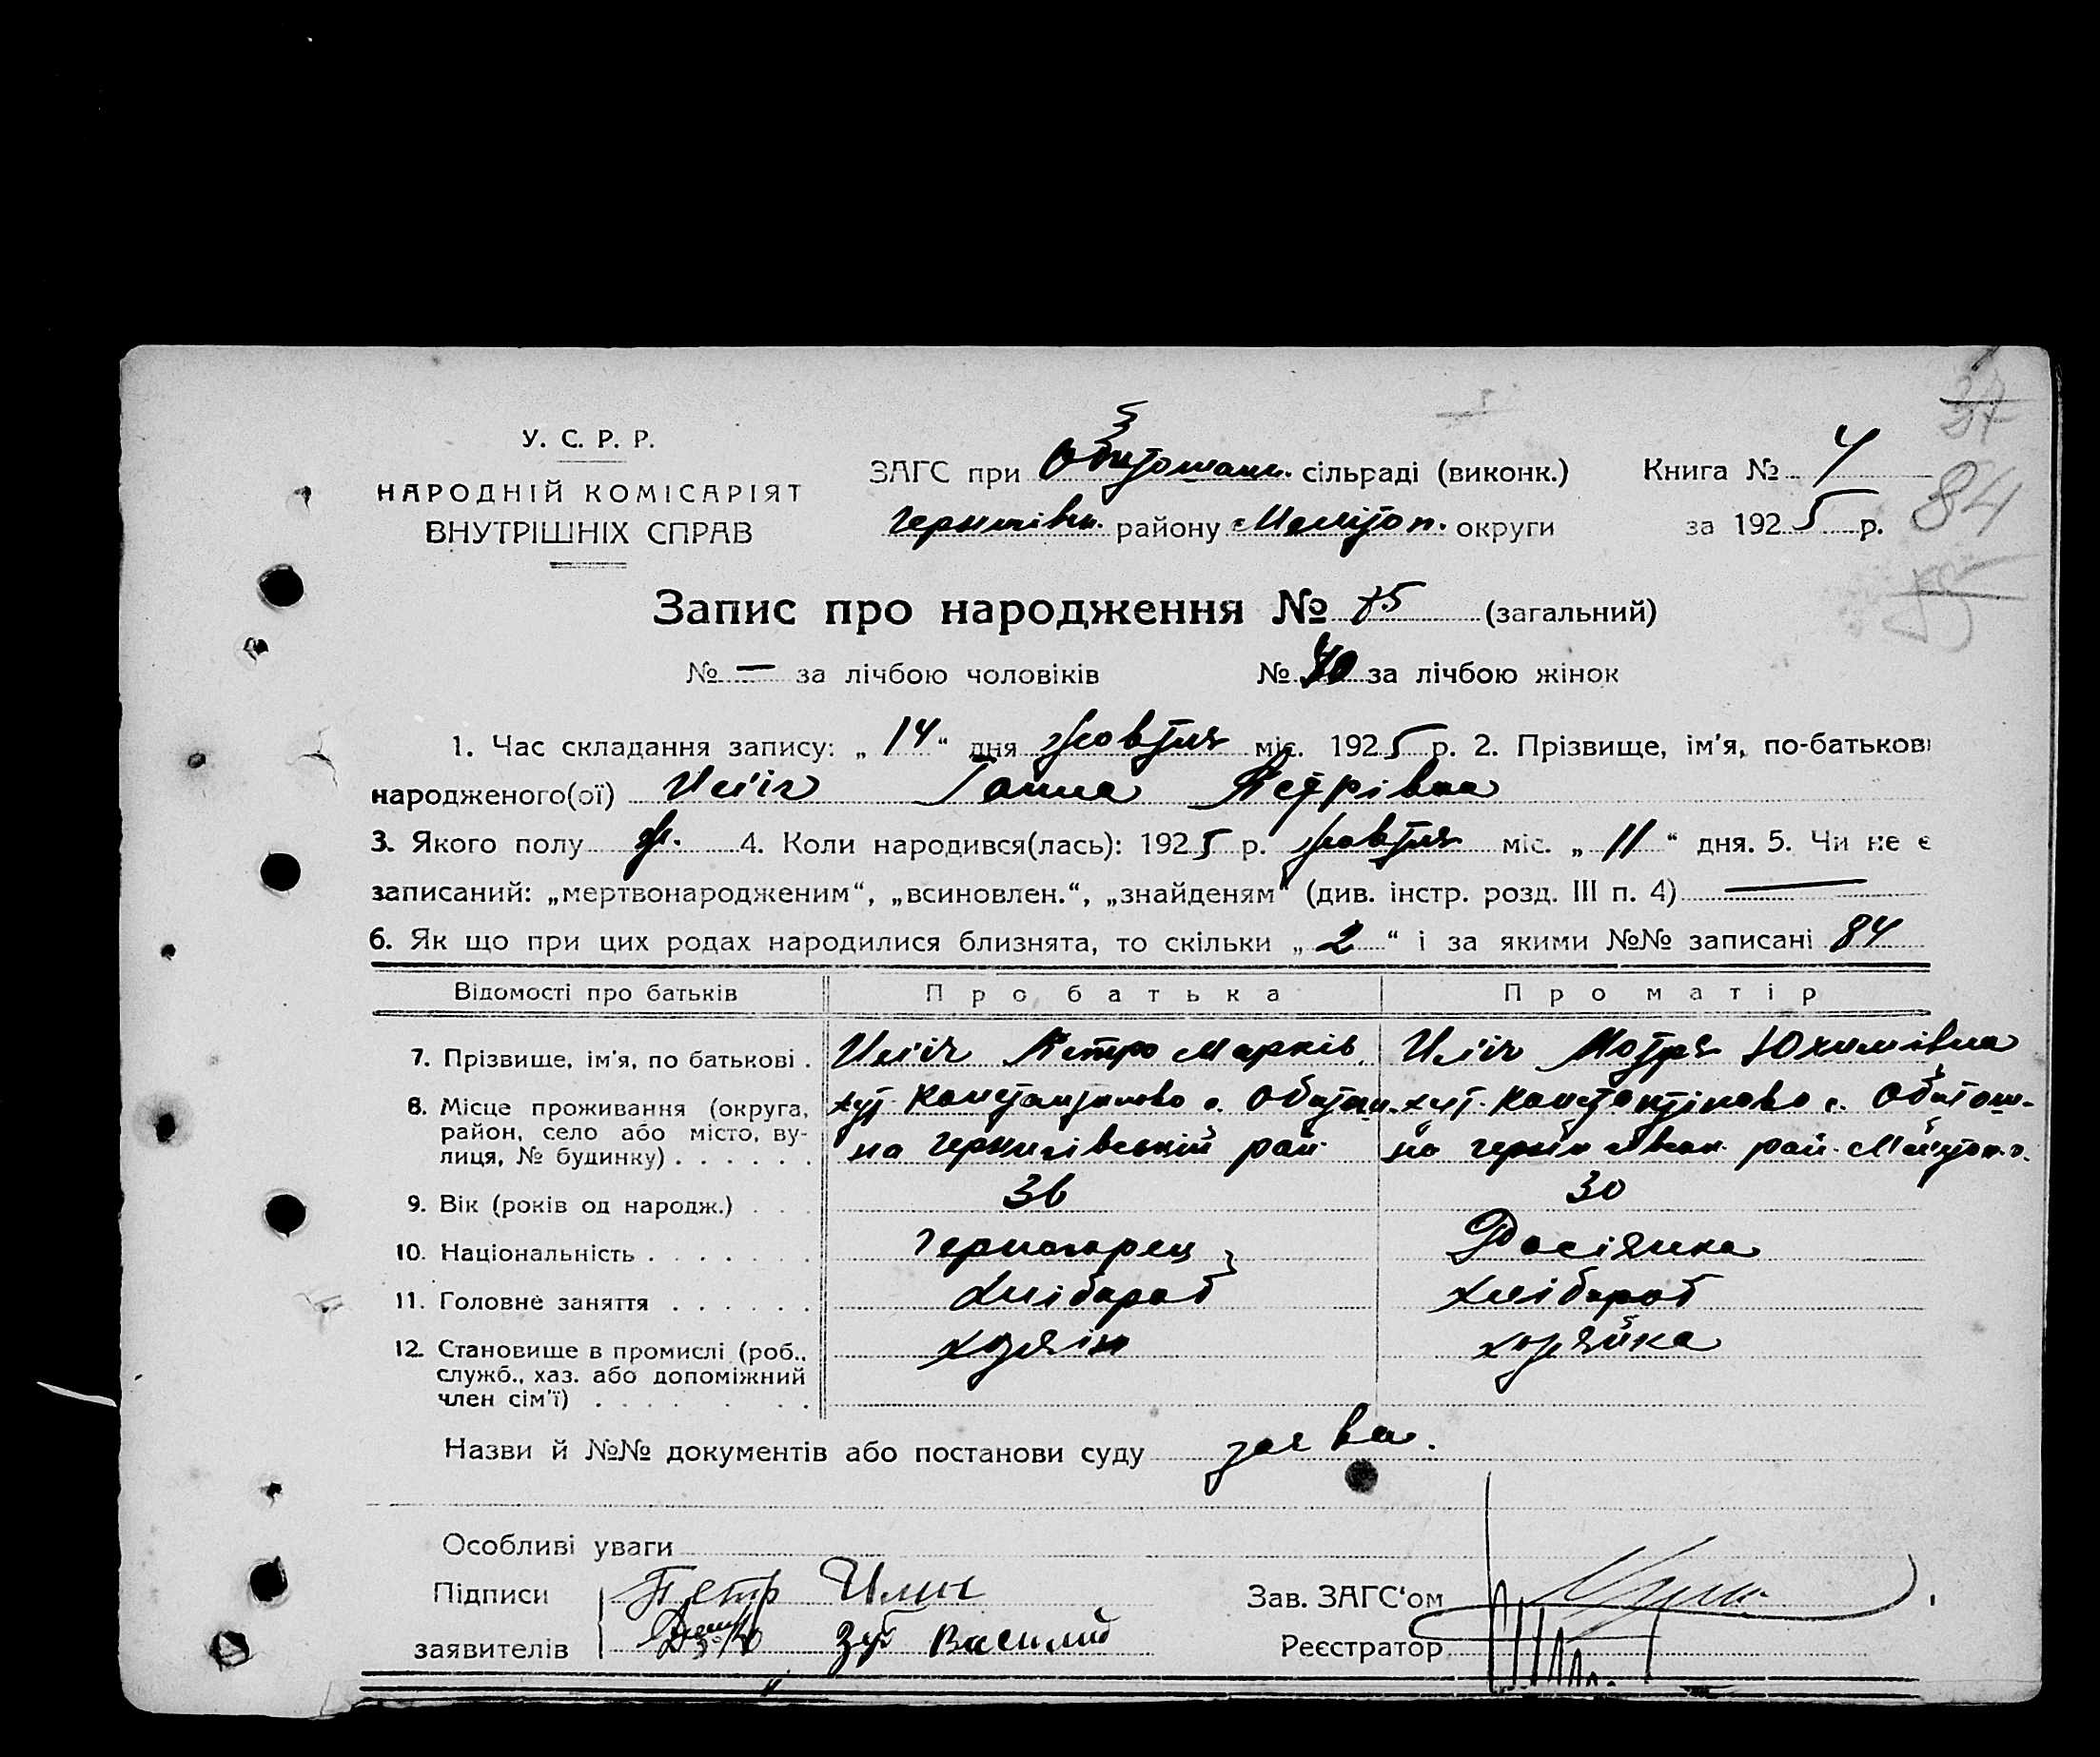 У. С. Р. Р.
НАРОДНІЙ КОМІСАРІЯТ
ВНУТРІШНІХ СПРАВ
ЗАГС при Обитошан. сільраді (виконк.)
Чернигівск. району Мелітоп. округи
Книга № 4
за 1925 р.
84
Запис про народження № 85 (загальний)
№ — за лічбою чоловіків № 40 за лічбою жінок
1. Час складання запису: „ 14 “ дня жовтня міс. 1925 р. 2. Прізвище, ім'я, по-батькові
народженого(ої) Иліч Ганна Петрівна
3. Якого полу ж. 4. Коли народився(лась): 1925 р. жовтня міс. „ 11 “ дня. 5. Чи не є
записаний: „мертвонародженим“, „всиновлен.“, „знайденям“ (див. інстр. розд. III п. 4) —
6. Як що при цих родах народилися близнята, то скільки „ 2 “ і за якими №№ записані 84
Відомості про батьків Про батька Про матір
7. Прізвище, ім'я, по батькові . Иліч Петро Марків Иліч Мотря Юхимівна
8. Місце проживання (округа, район, село або місто, вулиця, № будинку) . . . . . . хут. Константиново с. Обиточна Чернигівський рай хут. Константіново с. Обиточна рай.
9. Вік (років од народж.) . . . 36 30
10. Національність . . . . . . Черногорец Росіянка
11. Головне заняття . . . . . . Хлібороб хлібороб
12. Становище в промислі (роб., служб., хаз. або допоміжний член сім'ї) . . . . . . хозяін хозяйка
Назви й №№ документів або постанови суду заява.
Особливі уваги
Підписи Петр Илич
заявителів Зуб Василий
Зав. ЗАГС'ом
Реєстратор